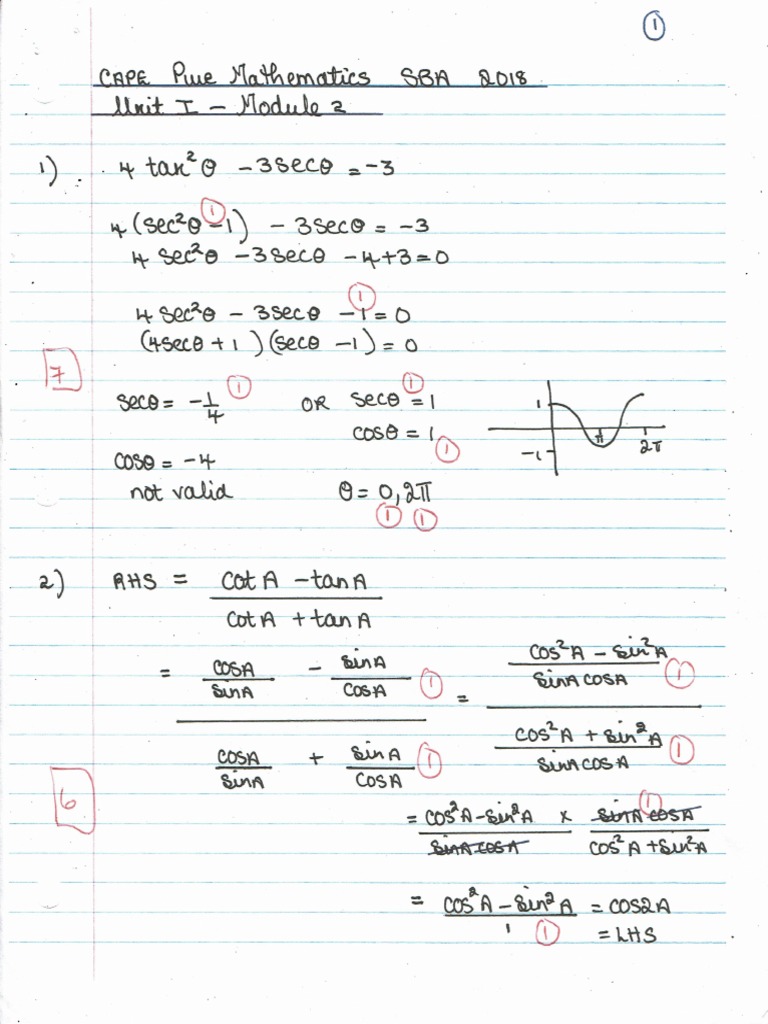 ①
CAPE Pure Mathematics SBA 2018
Unit I - Module 2
1) 4 tan²θ - 3secθ = -3
4(sec²θ - 1) - 3secθ = -3 ①
4 sec²θ - 3secθ - 4 + 3 = 0
4 sec²θ - 3secθ - 1 = 0 ①
(4secθ + 1)(secθ - 1) = 0
7
secθ = -1/4 ① OR secθ = 1 ①
cosθ = 1 ①
cosθ = -4
not valid θ = 0, 2π ① ①
1 -1 π 2π
2) RHS = (cot A - tan A)/(cot A + tan A)
= (cosA/sinA - sinA/cosA ①)/(cosA/sinA + sinA/cosA ①) = ((cos²A - sin²A)/(sinA cosA) ①)/((cos²A + sin²A)/(sinA cosA) ①)
6
= (cos²A - sin²A)/(sinA cosA) × (sinA cosA)/(cos²A + sin²A) ①
= (cos²A - sin²A)/1 ① = cos2A
= LHS